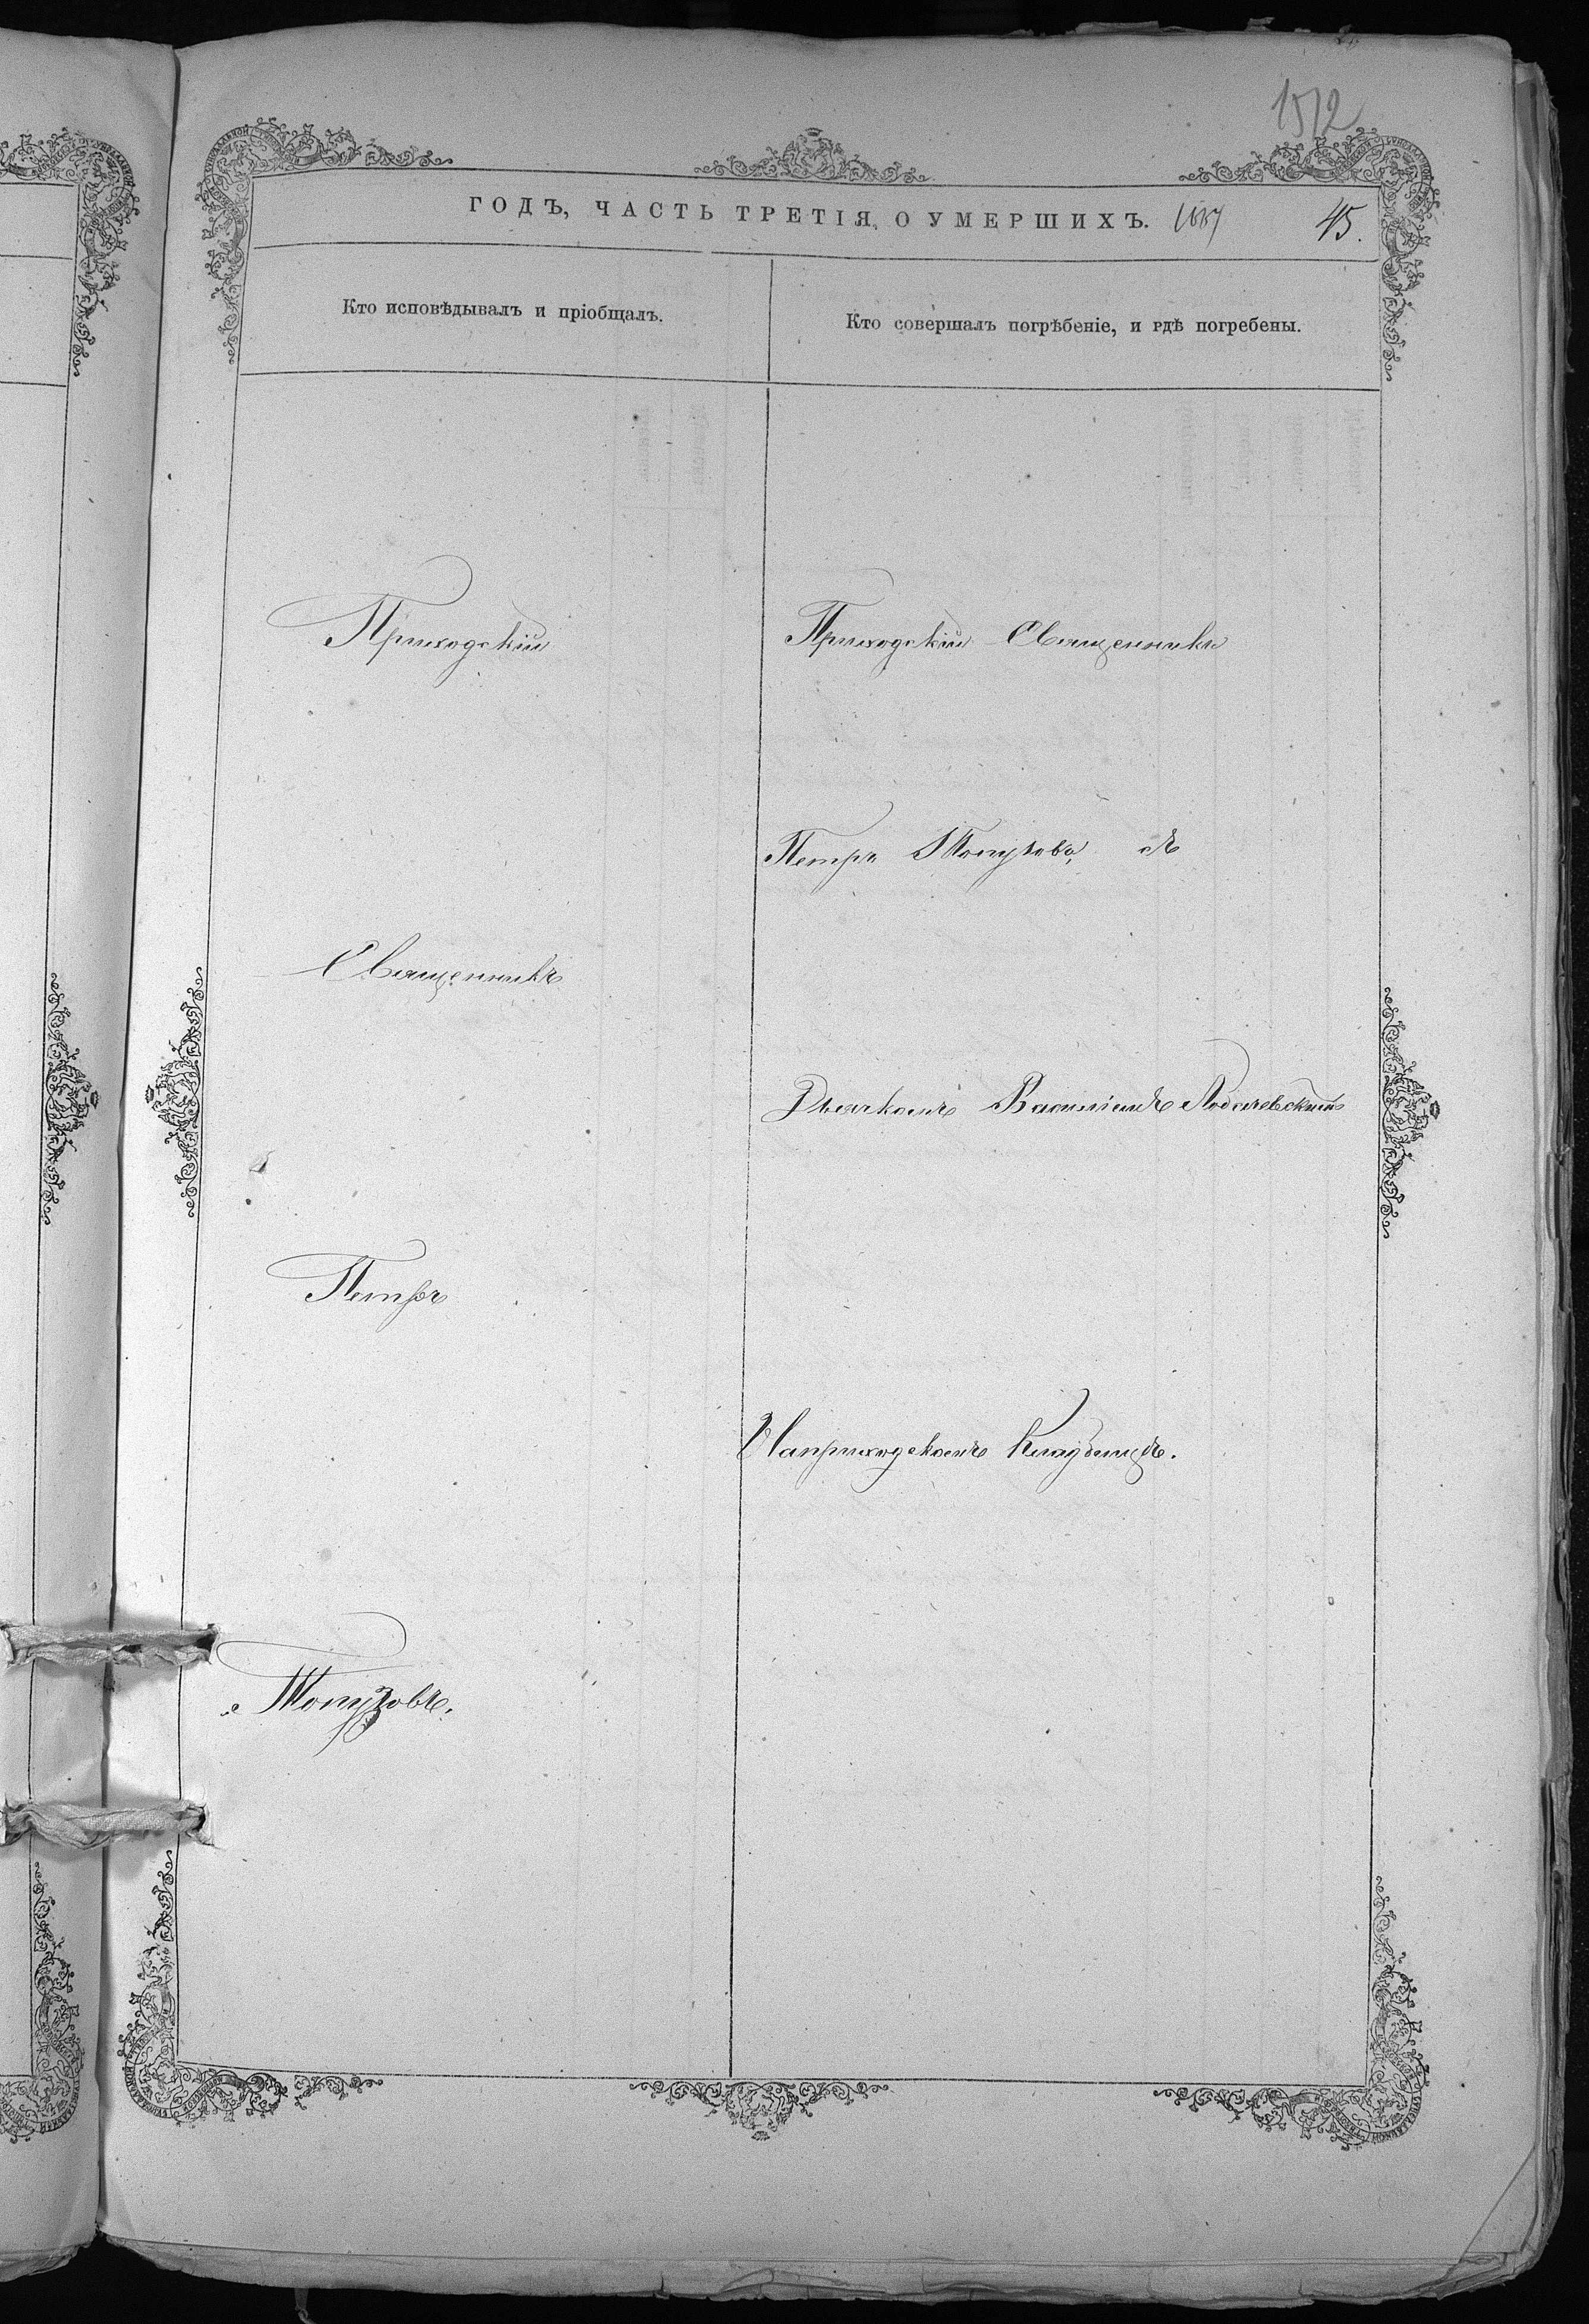 1512
ГОДЪ, ЧАСТЬ ТРЕТІЯ, О УМЕРШИХЪ. 1887
45.
Кто исповѣдывалъ и пріобщалъ.
Кто совершалъ погрѣбеніе, и гдѣ погребены.
Приходскій
Священникъ
Петръ
Топузовъ.
Приходскій Священникъ
Петръ Топузовъ, съ
Дьячкомъ Василіемъ
На приходскомъ Кладбищѣ.